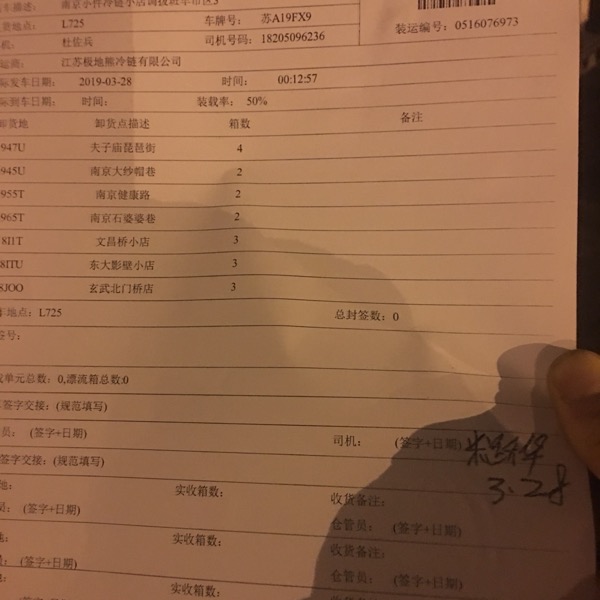 车描述: 南京小件冷链小店调拨班车市区3
货地点: L725 车牌号: 苏A19FX9
机: 杜佐兵 司机号码: 18205096236
装运编号: 0516076973
运商: 江苏极地熊冷链有限公司
际发车日期: 2019-03-28 时间: 00:12:57
际到车日期: 时间: 装载率: 50%
卸货地 卸货点描述 箱数 备注
947U 夫子庙琵琶街 4
945U 南京大纱帽巷 2
955T 南京健康路 2
965T 南京石婆婆巷 2
8I1T 文昌桥小店 3
8ITU 东大影壁小店 3
8JOO 玄武北门桥店 3
车地点: L725 总封签数: 0
签号:
载单元总数: 0,漂流箱总数:0
签字交接: (规范填写)
员: (签字+日期) 司机: (签字+日期)
3.28
签字交接: (规范填写)
地: 实收箱数: 收货备注:
员: (签字+日期) 仓管员: (签字+日期)
地: 实收箱数: 收货备注:
员: (签字+日期) 仓管员: (签字+日期)
实收箱数: